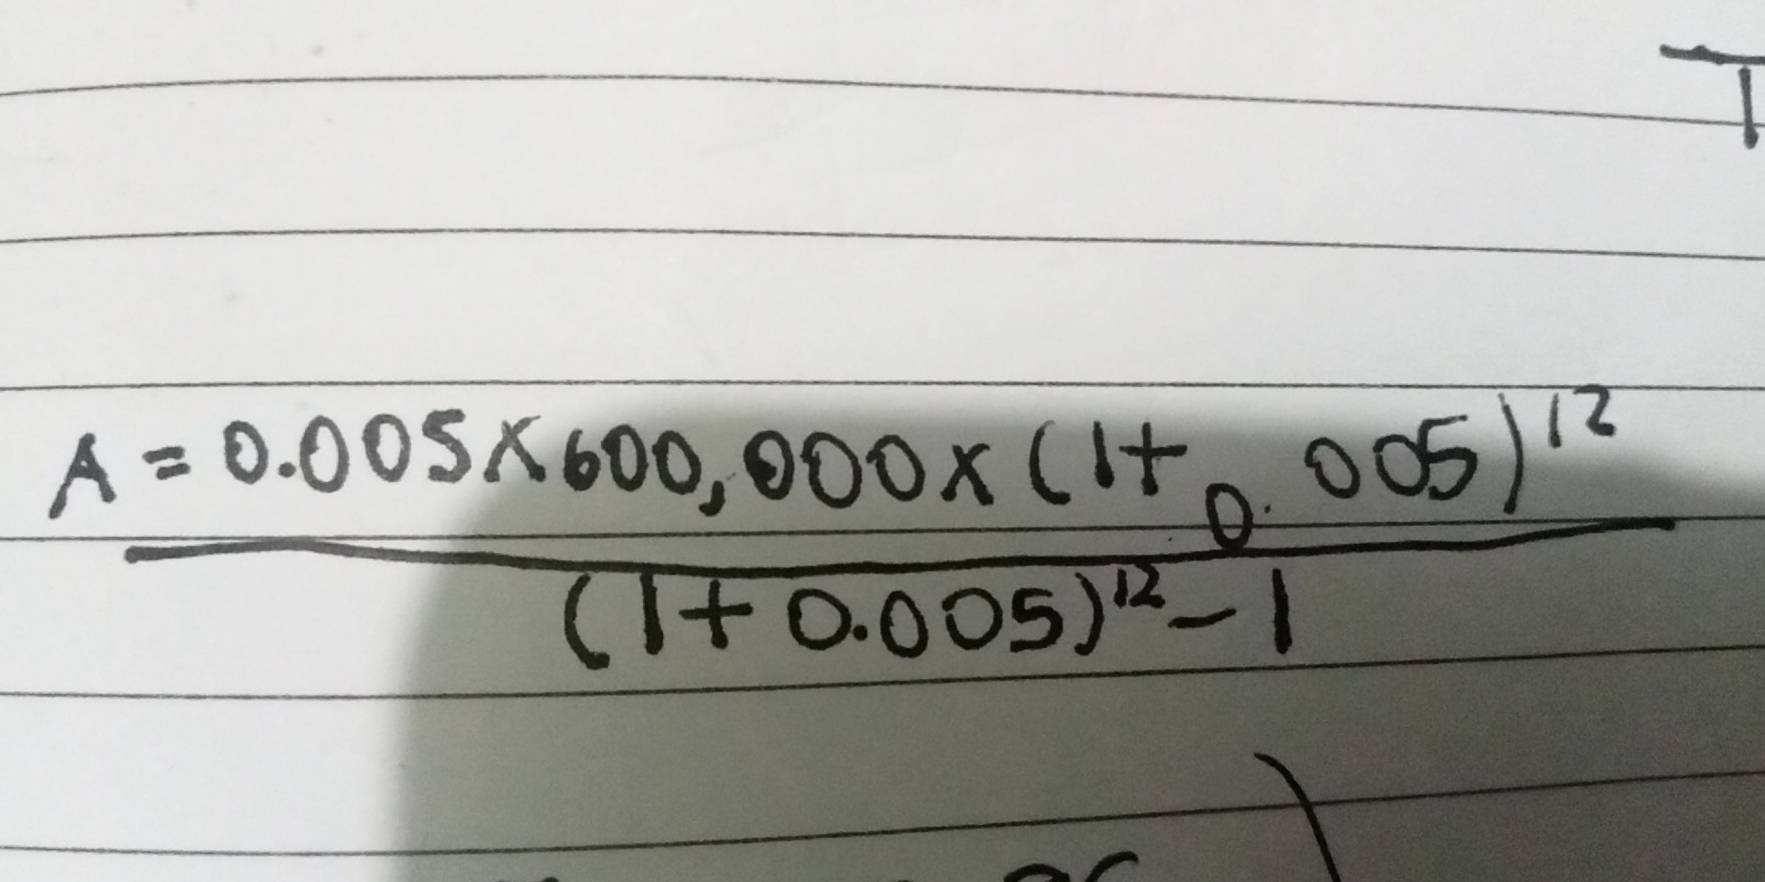 T
A = 0.005 x 600,000 x (1 + 0.005)¹²
(1 + 0.005)¹² - 1